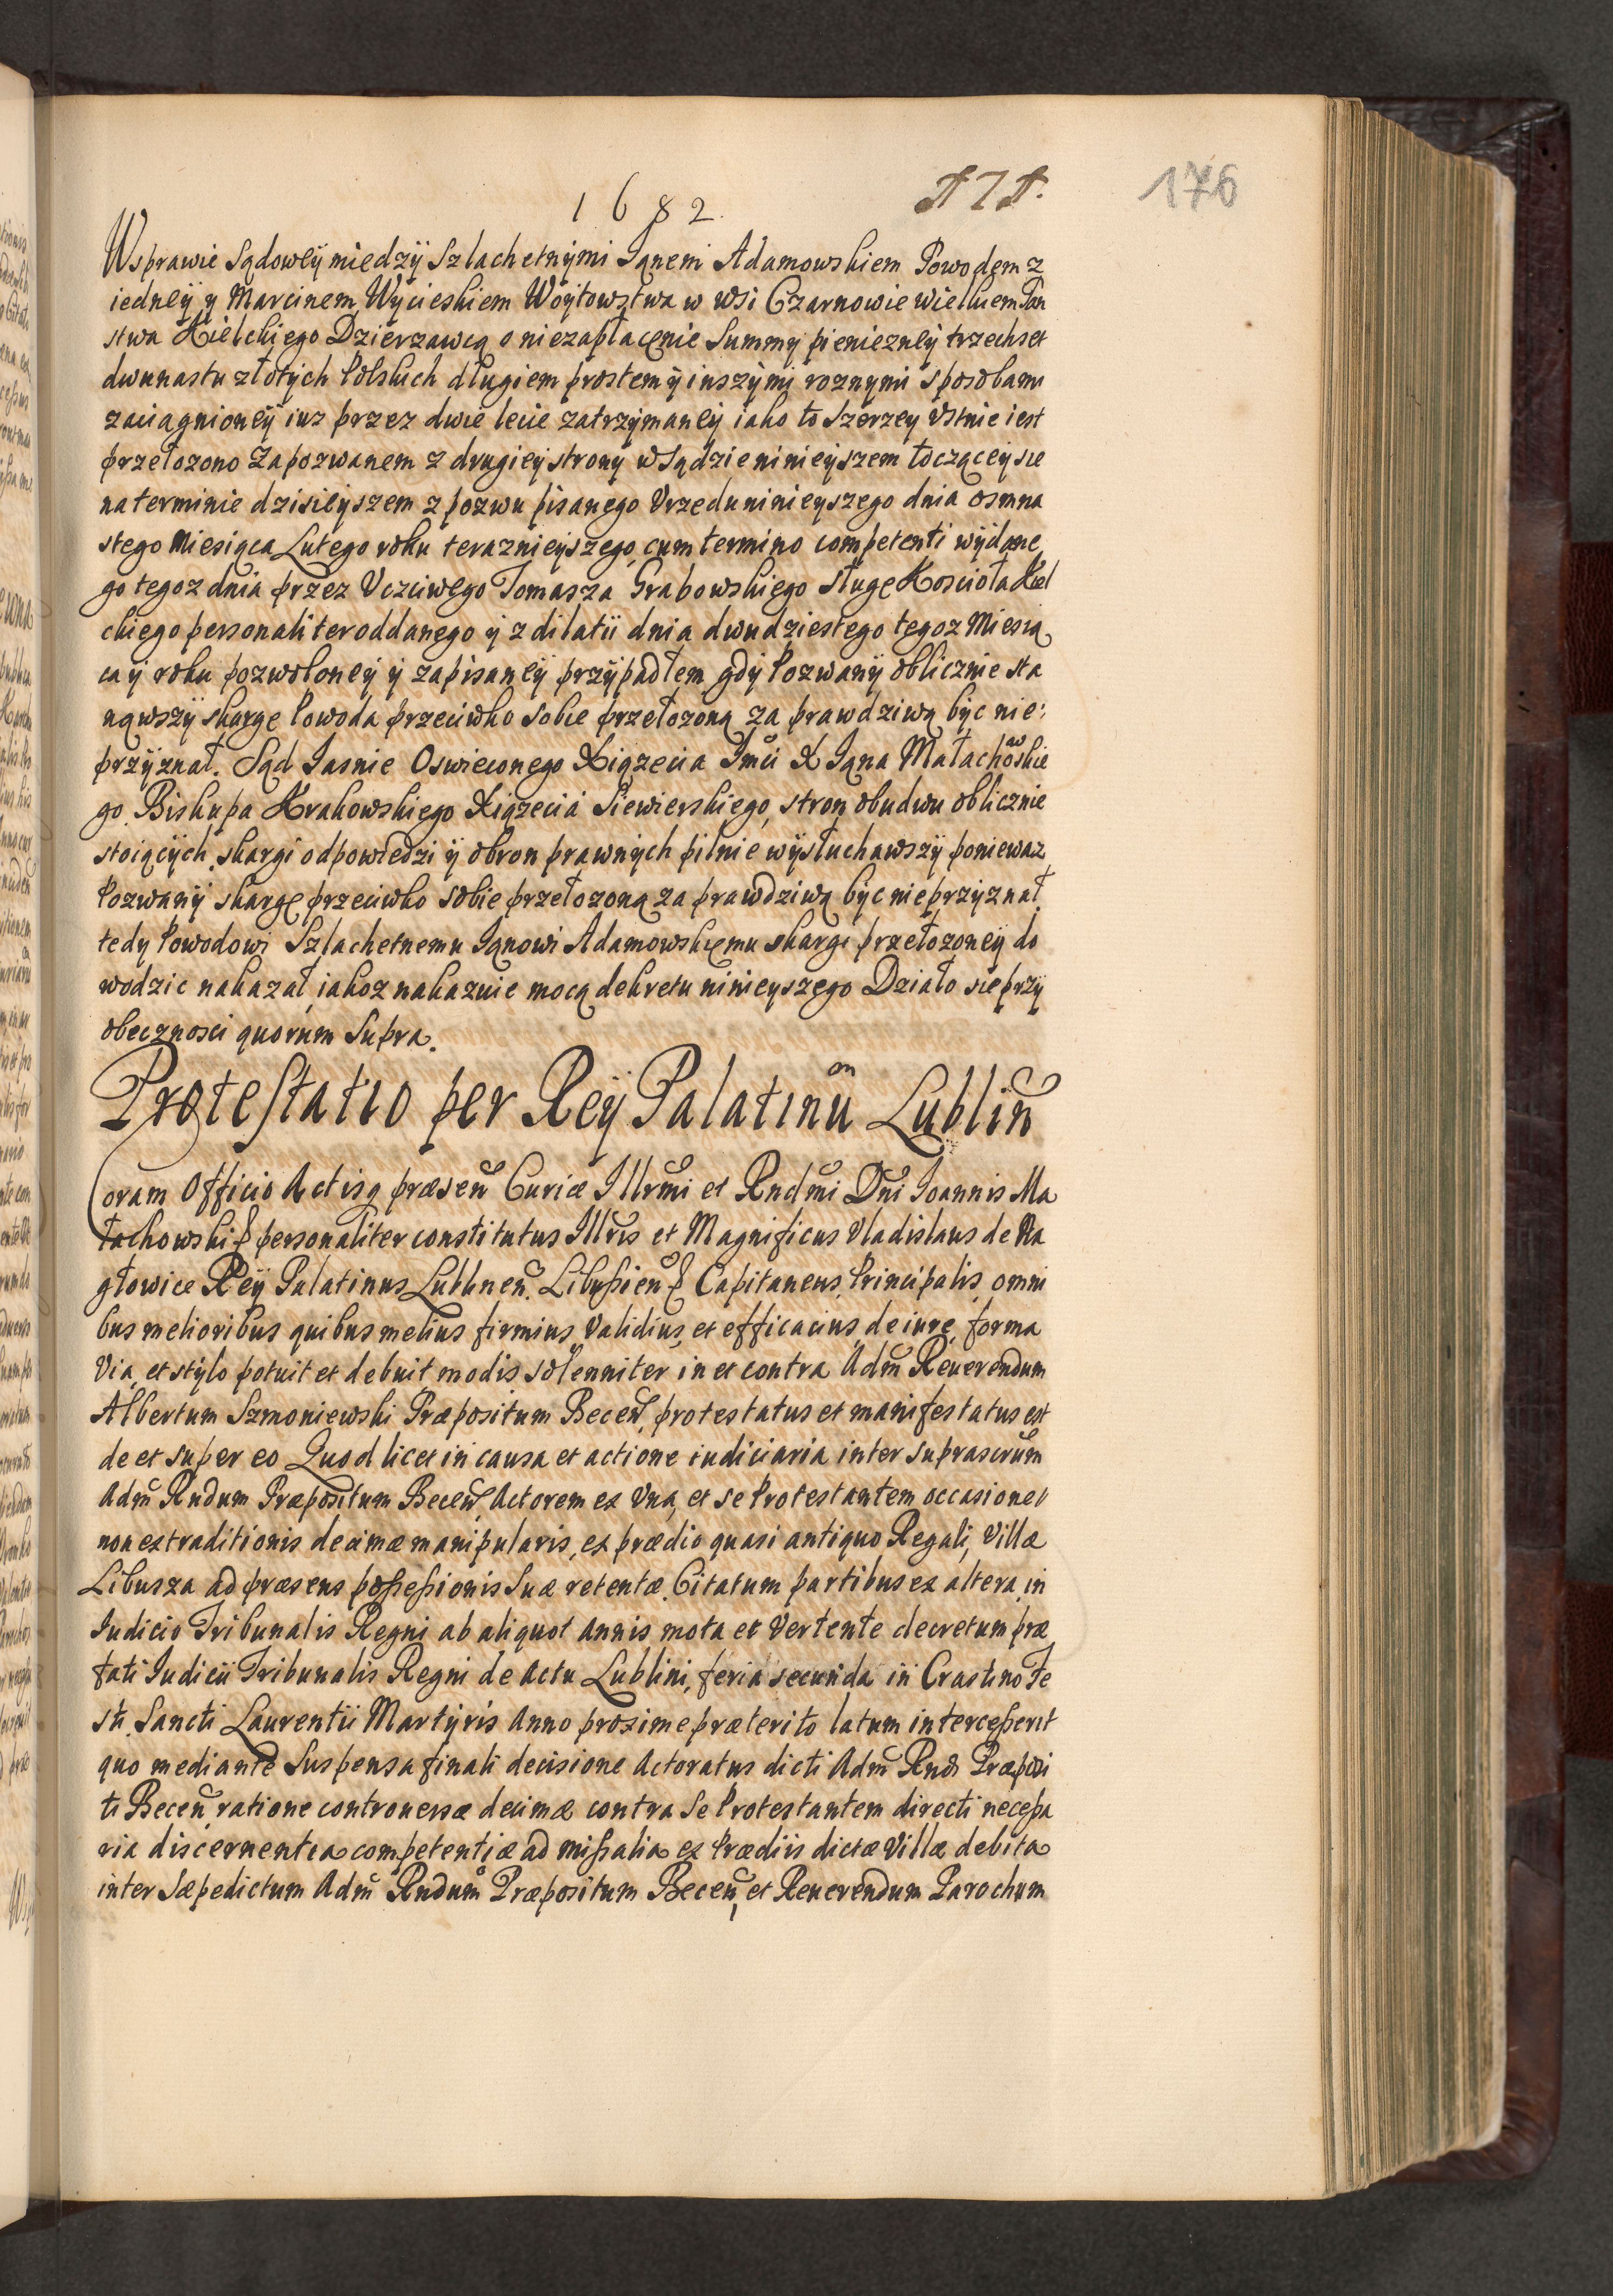 1682.
171.
176
Wsprawie Sądowey miedzy Szlachetnymi Janem Adamowskiem Powodem z
iedney y Marcinem Wycieskiem Woytowstwa w wsi Czarnowie wielkiem Pan
stwa Kielckiego Dzierzawcą o niezapłacenie Summy pieniezney trzechset
dwunastu złotych Polskich długiem prostem y inszymi roznymi sposobami
zaciągnioney iuz przez dwie lecie zatrzymaney iako to szerzey Ustnie iest
przełozono Zapozwanem z drugiey strony w Sądzie ninieyszem toczącey sie
na terminie dzisieyszem z pozwu pisanego Urzedu ninieyszego dnia osmna
stego Miesiąca Lutego roku terazneyszego cum termino competenti wydane
go tegoz dnia przez Uczciwego Tomasza Grabowskiego sługe Koscioła Kiel
ckiego personaliter oddanego y z dilatii dnia dwudziestego tegoz Miesią
ca y roku pozwoloney y zapisaney przypadłem gdy Pozwany oblicznie sta
nąwszy skarge Powoda przeciwko sobie przełozoną za prawdziwą byc nie:
przyznał. Sąd Jasnie Oswieconego Xiązecia Jmci X Jana Małachowskie
go Biskupa Krakowskiego Xiązecia Siewierskiego, stron obudwu oblicznie
stoiących skargi odpowiedzi y obron prawnych pilnie wysłuchawszy poniewaz
Pozwany skargę przeciwko sobie przełozoną za prawdziwą byc nieprzyznał
tedy Powodowi Szlachetnemu Janowi Adamowskiemu skargi przełozoney do
wodzic nakazał iakoz nakazuie mocą dekretu ninieyszego Działo sie przy
obecznosci quorum Supra.
Protestatio per Rey Palatinũ Lublin̄
Coram Officio Actisq̃ præsen̄ Curiæ Illr̄mi et Rndmi Dni Joannis Ma
łachowski & personaliter constitutus Illr̄is et Magnificus Vladislaus de Na
głowice Rey Palatinus Lublinen̄. Libussien̄ & Capitaneus, Principalis, omni
bus melioribus quibus melius firmius, Validius, et efficacius de iure, forma
Via, et stylo potuit et debuit modis solenniter, in et contra Adm̄ Reuerendum
Albertum Szmoniewski Præpositum Becen̄, protestatus et manifestatus est
de et super eo Quod licet in causa et actione iudiciaria inter suprascrūm
Adm̄ Rndum Præpositum Becen̄, Actorem ex Vna, et se Protestantem occasione
non extraditionis decimæ manipularis, ex prædio quasi antiquo Regali, Villæ
Libusza ad præsens possessionis Suæ retentæ Citatum partibus ex altera, in
Iudicio Tribunalis Regni ab aliquot annis mota et Vertente decretum præ
fati Iudicii Tribunalis Regni de Actu Lublini, feria secunda in Crastino Fe
sti Sancti Laurentii Martyris Anno proxime præterito latum intercesserit
quo mediante Suspensa finali decisione Actoratus dicti Adm̄ Rndi Præposi
ti Becen̄, ratione controuersæ decimæ contra Se Protestantem directi necessa
ria discernentia competentiæ ad missalia ex Prædiis dictæ Villæ debita
inter Sæpedictum Adm̄ Rndum̄ Præpositum Becen̄, et Reuerendum Parochum